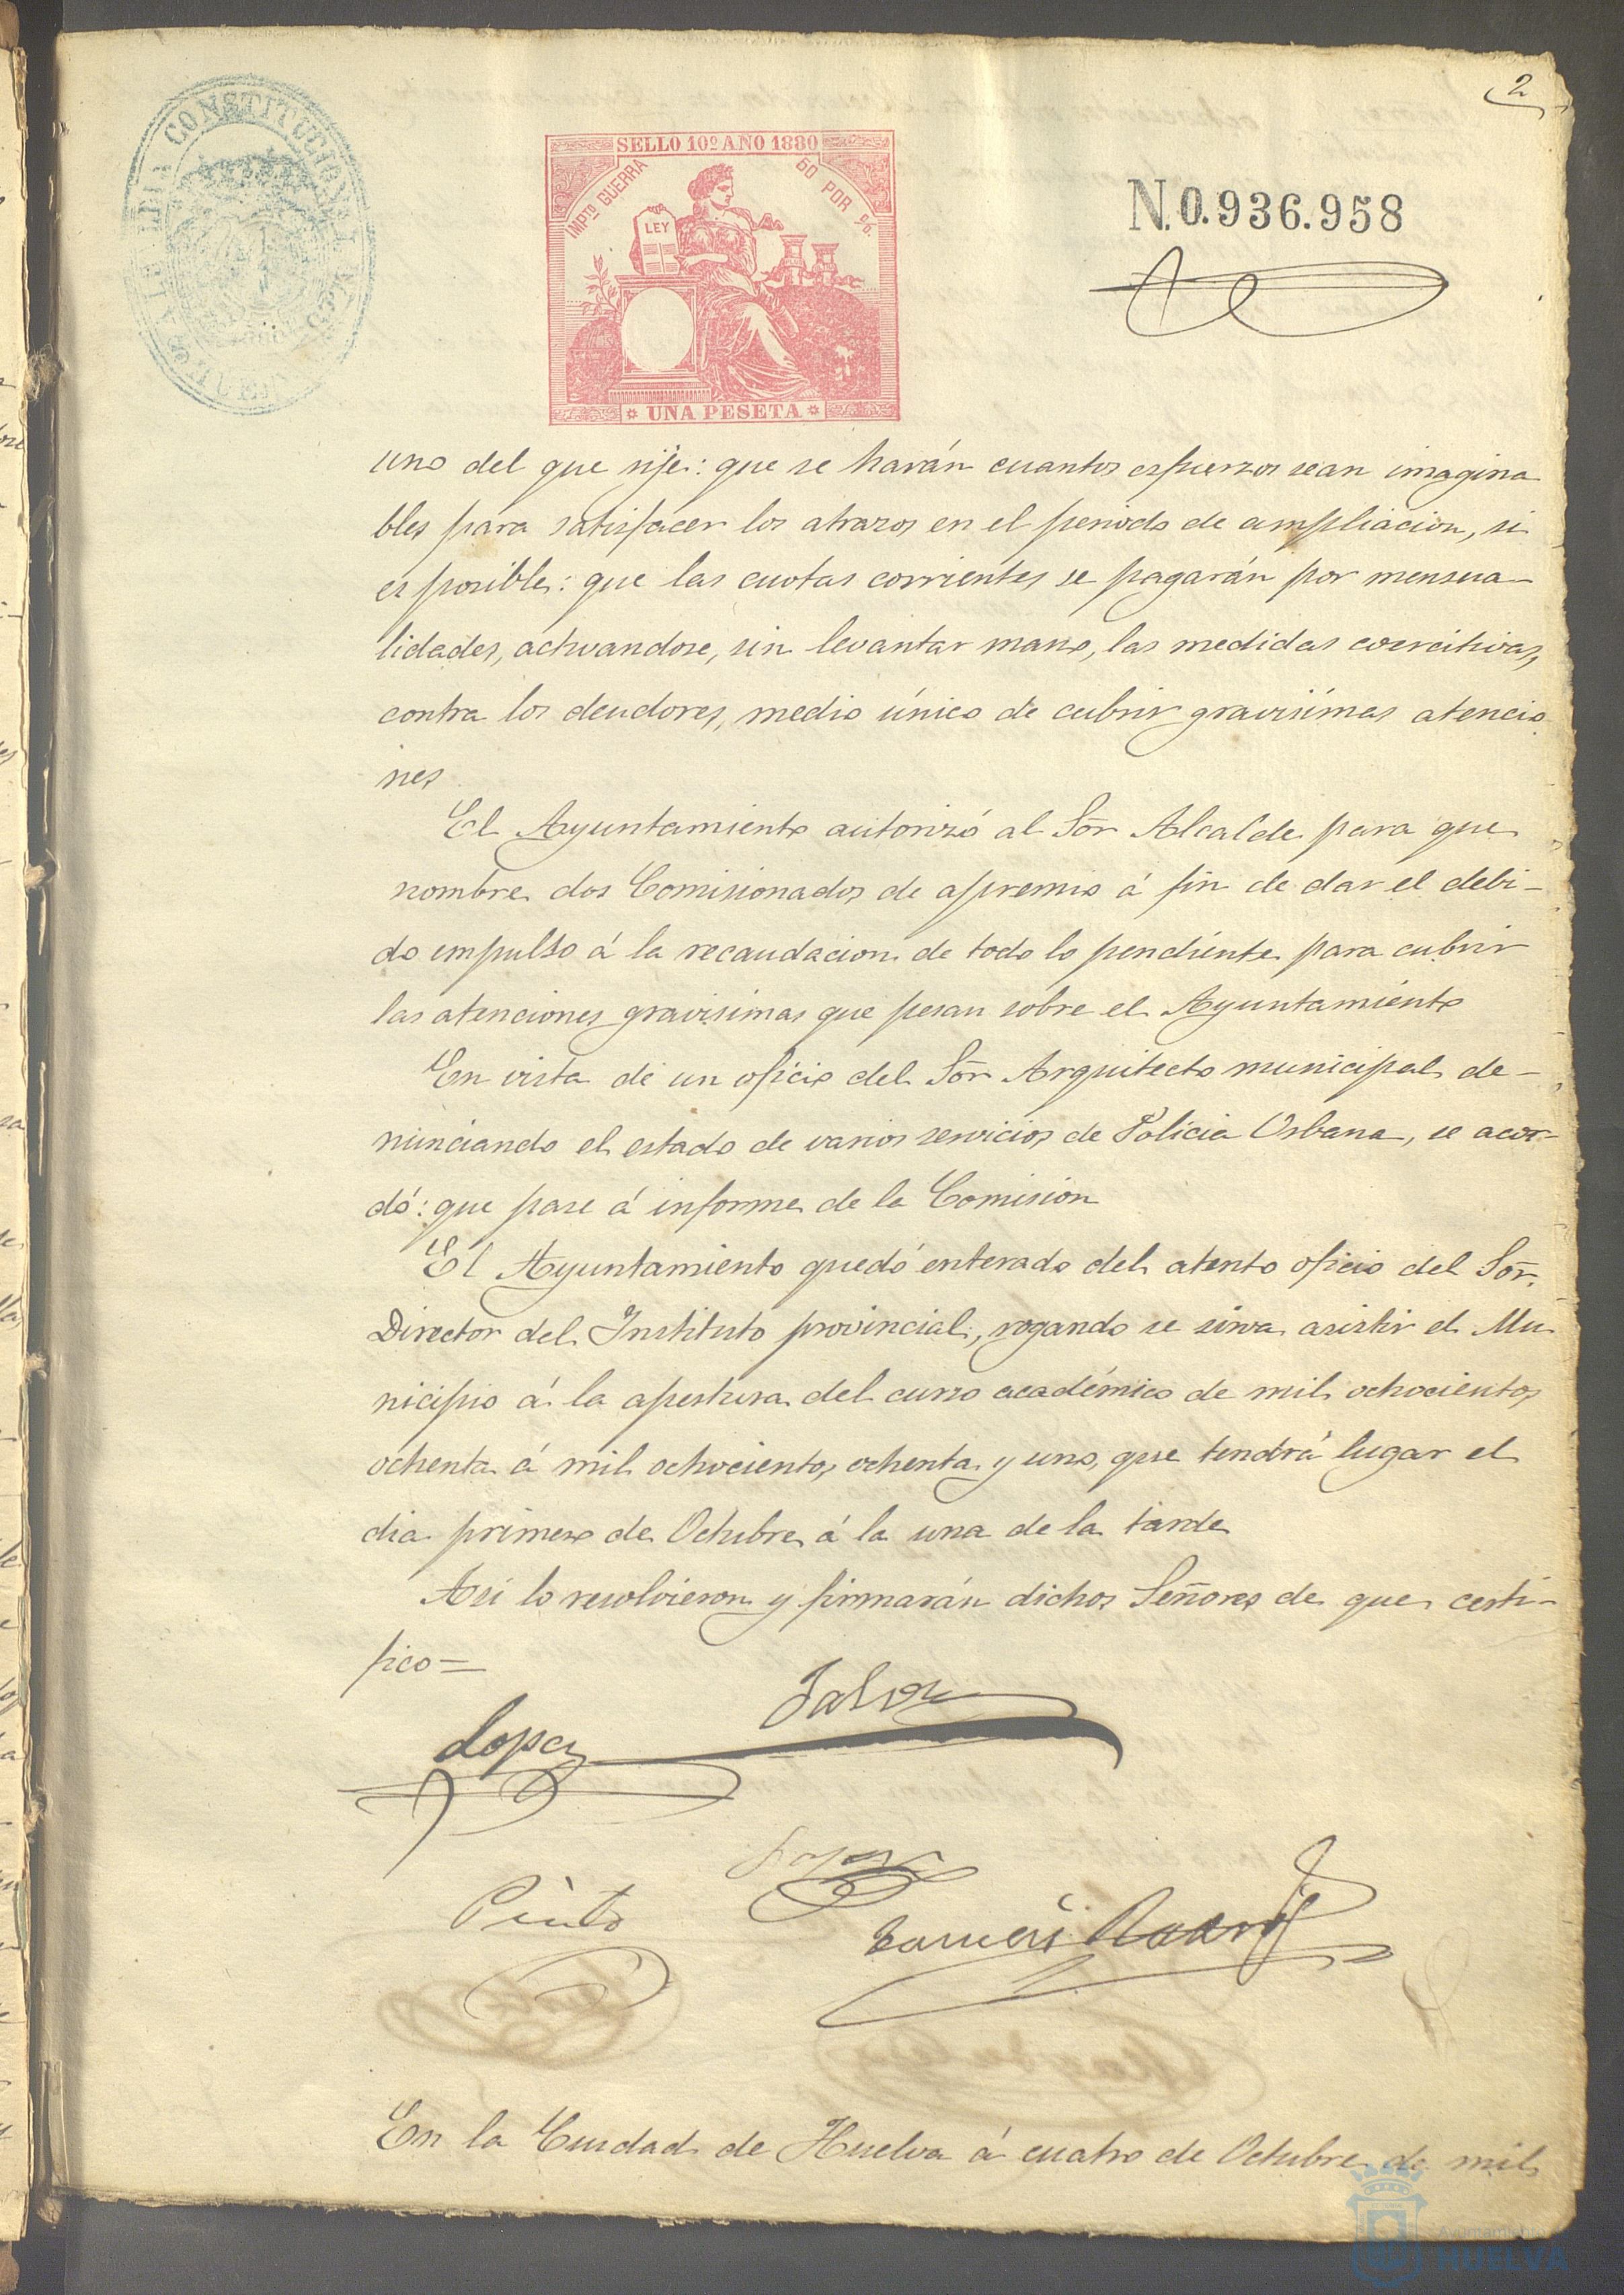 2
ALCALDIA CONSTITUCIONAL
HUELVA
SELLO 10º AÑO 1880
IMPTO GUERRA
60 POR %
LEY
UNA PESETA
N.0.936.958
uno del que rije: que se harán cuantos esfuerzos sean imagina
bles para satisfacer los atrazos en el periodo de ampliacion, si
es posible: que las cuotas corrientes se pagarán por mensua-
lidades, activandose, sin levantar mano, las medidas coercitivas,
contra los deudores, medio único de cubrir gravisimas atencio
nes
El Ayuntamiento autorizó al Sor Alcalde para que
nombre dos Comisionados de apremio á fin de dar el debi-
do impulso á la recaudacion de todo lo pendiente para cubrir
las atenciones gravisimas que pesan sobre el Ayuntamiento
En vista de un oficio del Sor Arquitecto municipal de-
nunciando el estado de varios servicios de Policia Urbana, se acor-
dó: que pase á informe de la Comision
El Ayuntamiento quedó enterado del atento oficio del Sor.
Director del Instituto provincial, rogando se sirva asistir el Mu
nicipio á la apertura del curso académico de mil ochocientos
ochenta á mil ochocientos ochenta y uno, que tendrá lugar el
dia primero de Octubre á la una de la tarde
Asi lo resolvieron y firmarán dichos Señores de que certi-
fico=
Lopez
Pinto
En la Ciudad de Huelva á cuatro de Octubre de mil
Ayuntamiento
HUELVA